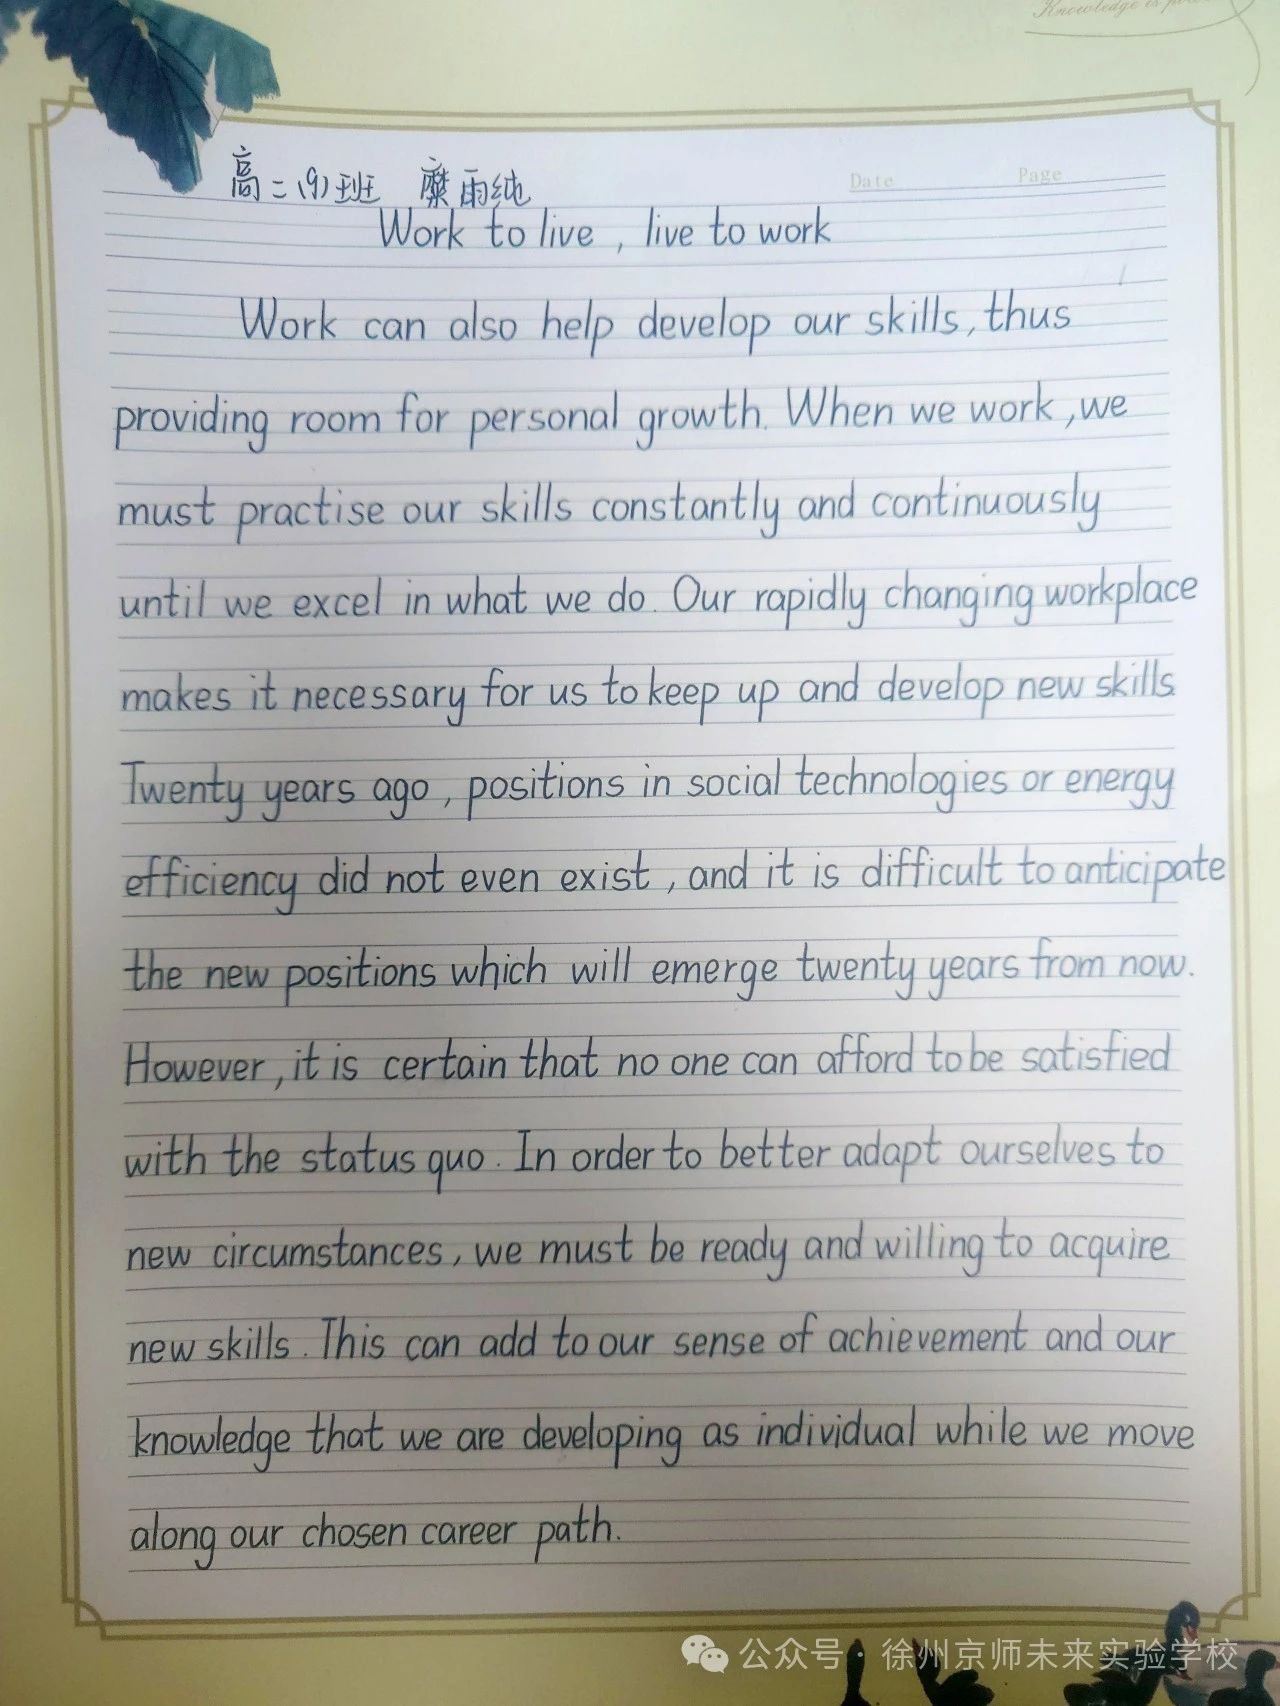 Knowledge is
高二(9)班 糜雨纯
Date Page
Work to live, live to work
Work can also help develop our skills, thus
providing room for personal growth. When we work, we
must practise our skills constantly and continuously
until we excel in what we do. Our rapidly changing workplace
makes it necessary for us to keep up and develop new skills
Twenty years ago, positions in social technologies or energy
efficiency did not even exist, and it is difficult to anticipate
the new positions which will emerge twenty years from now.
However, it is certain that no one can afford to be satisfied
with the status quo. In order to better adapt ourselves to
new circumstances, we must be ready and willing to acquire
new skills. This can add to our sense of achievement and our
knowledge that we are developing as individual while we move
along our chosen career path.
公众号·徐州京师未来实验学校